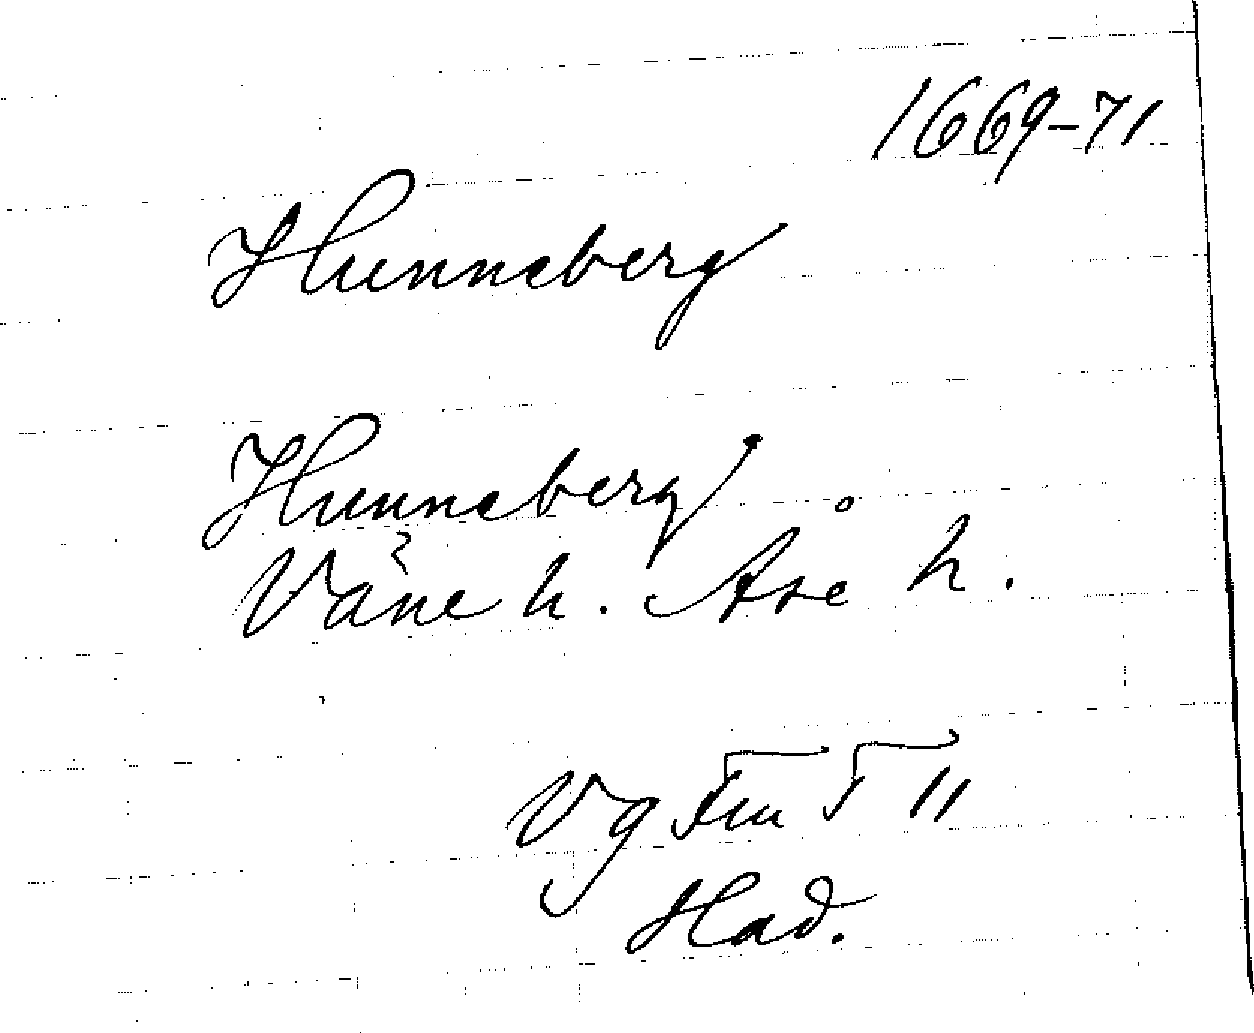 1669-71
Hunneberg
Hunneberg
Väne h. Åse h.
Vg Fnu F 11
Had.